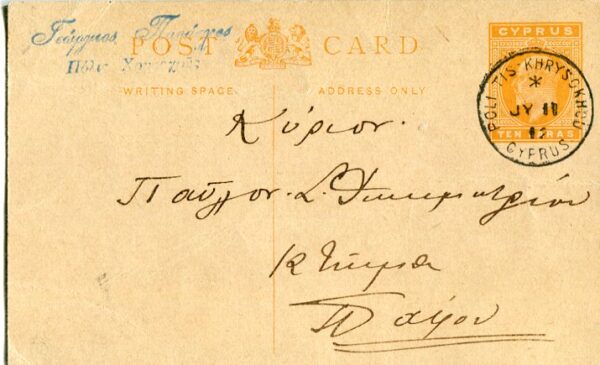 Γεώργιος
POST CARD
Πόλις Χρυσοχοῦς
WRITING SPACE. ADDRESS ONLY
CYPRUS
TEN PARAS
POLI-TIS-KHRYSOKHOU
*
JY 11
12
CYPRUS
Κύριον.
Παῦλον.
Κτῆμα
Πάφου